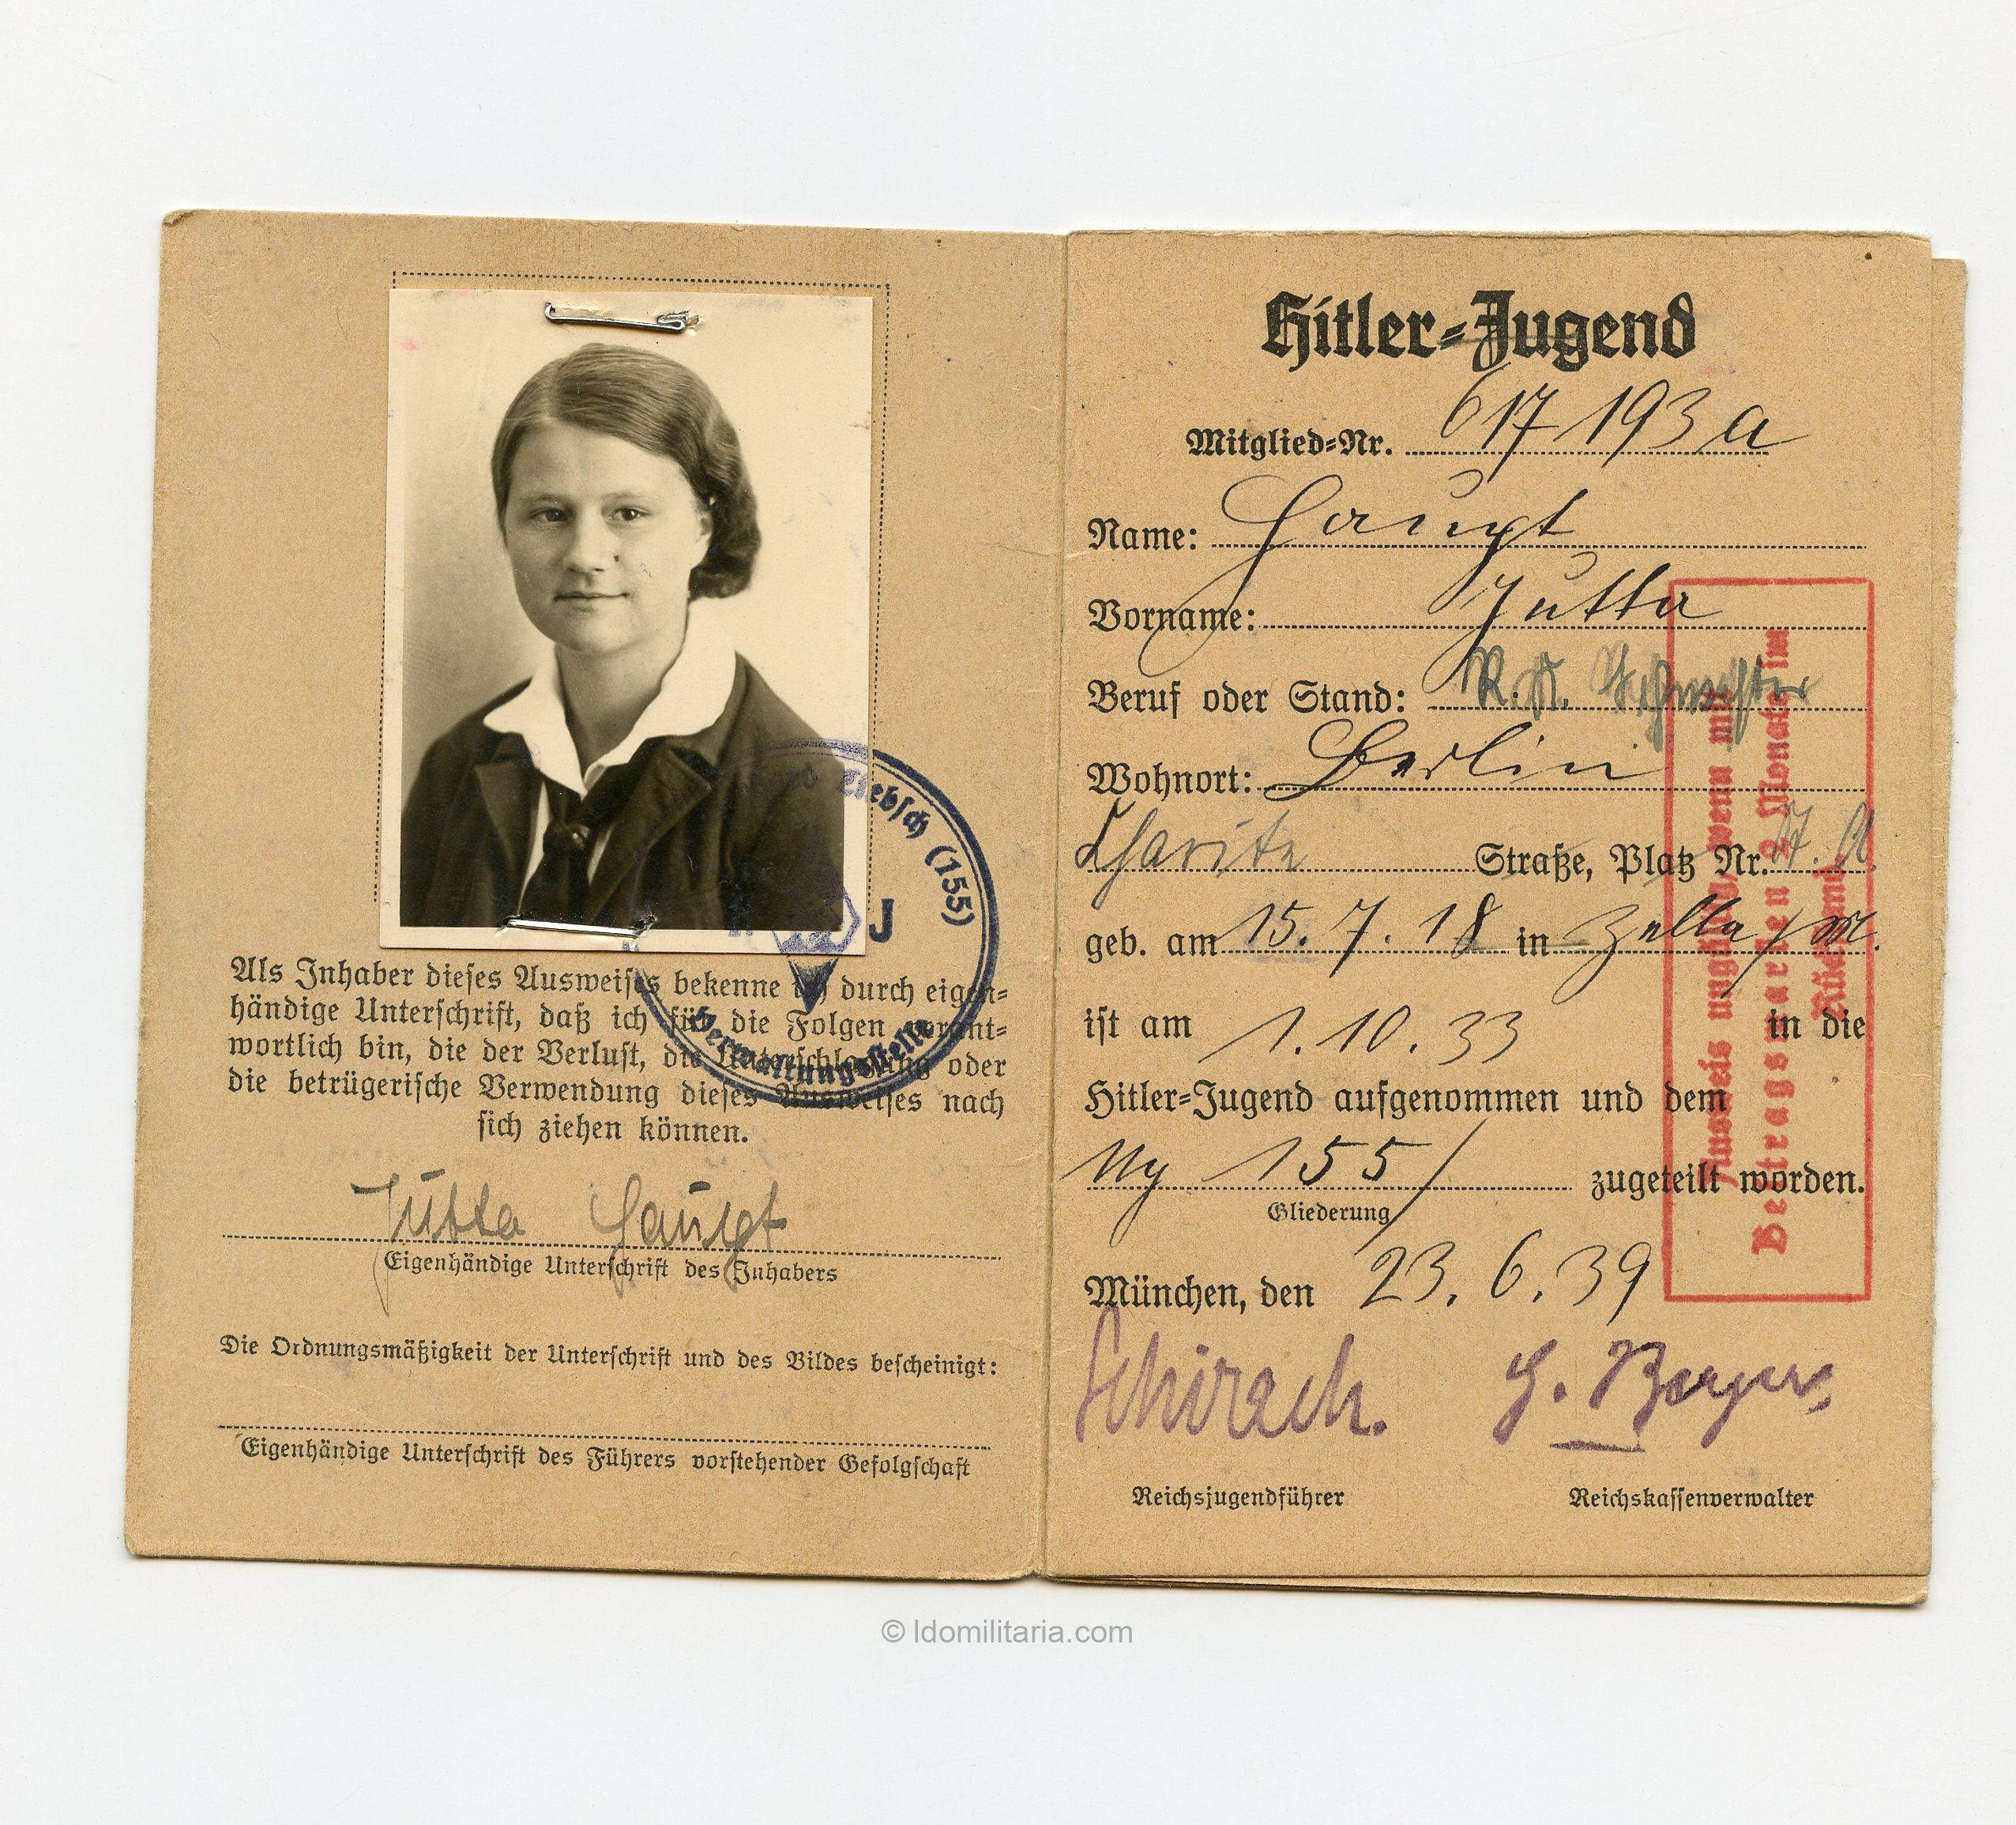 Als Inhaber dieses Ausweises bekenne ich durch eigen-
händige Unterschrift, daß ich für die Folgen verant-
wortlich bin, die der Verlust, die Unterschlagung oder
die betrügerische Verwendung dieses Ausweises nach
sich ziehen können.
Jutta Haupt
Eigenhändige Unterschrift des Inhabers
Die Ordnungsmäßigkeit der Unterschrift und des Bildes bescheinigt:
Eigenhändige Unterschrift des Führers vorstehender Gefolgschaft
Liebsch (155)
J
Verwaltungsstelle
Hitler-Jugend
Mitglied-Nr. 617193 a
Name: Haupt
Vorname: Jutta
Beruf oder Stand: Schwester
Wohnort: Berlin
Charité Straße, Platz Nr.
geb. am 15. 7. 18 in Zella/M.
ist am 1. 10. 33 in die
Hitler-Jugend aufgenommen und dem
155/ zugeteilt worden.
Gliederung
München, den 23. 6. 39
Schirach. G. Berger
Reichsjugendführer Reichskassenverwalter
Ausweis ungültig, wenn mit
Beitragsmarken 2 Monate im
Rückstand
© ldomilitaria.com